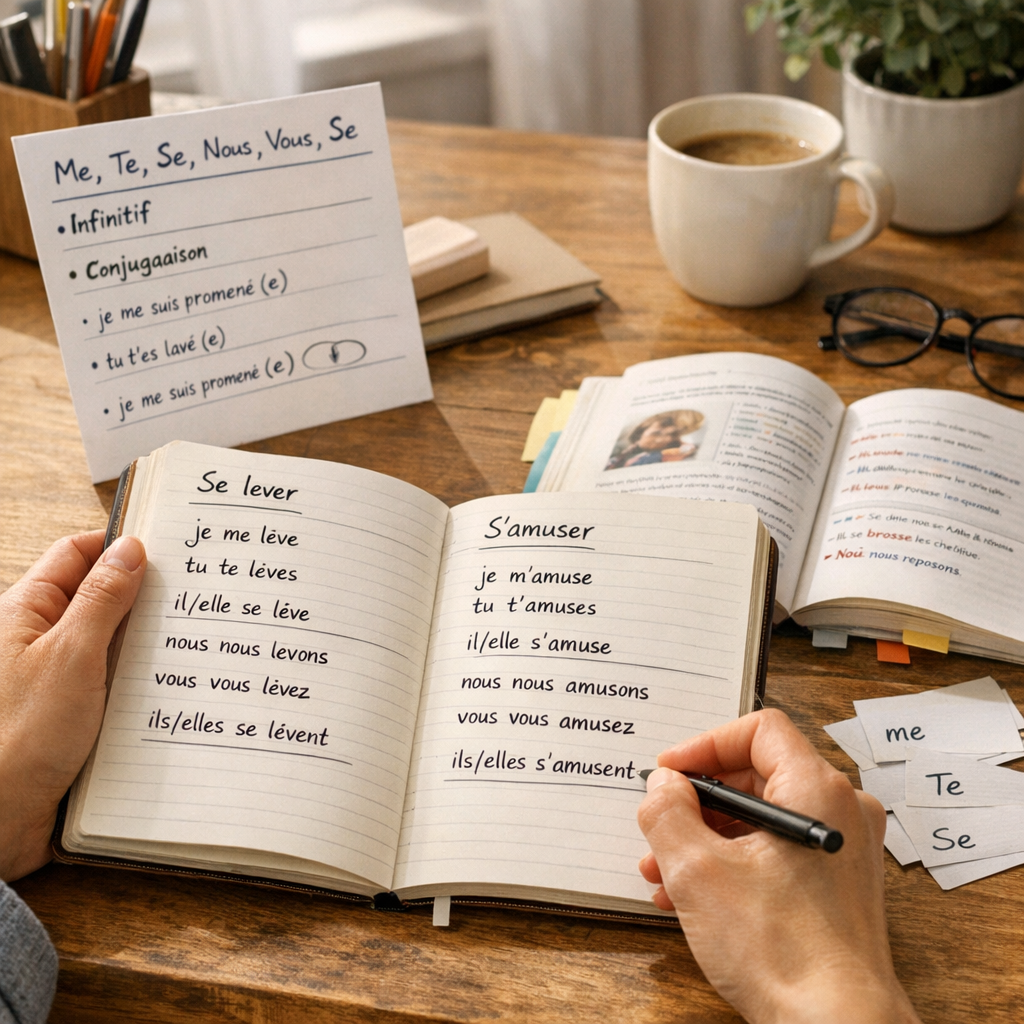 Me, Te, Se, Nous, Vous, Se
• Infinitif
• Conjugaaison
• je me suis promené (e)
• tu t'es lavé (e)
• je me suis promené (e)
Se lever
je me lève
tu te lèves
il/elle se léve
nous nous levons
vous vous lévez
ils/elles se lévent
S'amuser
je m'amuse
tu t'amuses
il/elle s'amuse
nous nous amusons
vous vous amusez
ils/elles s'amusent
se brosse les
Noù. nous reposons.
me
Te
Se